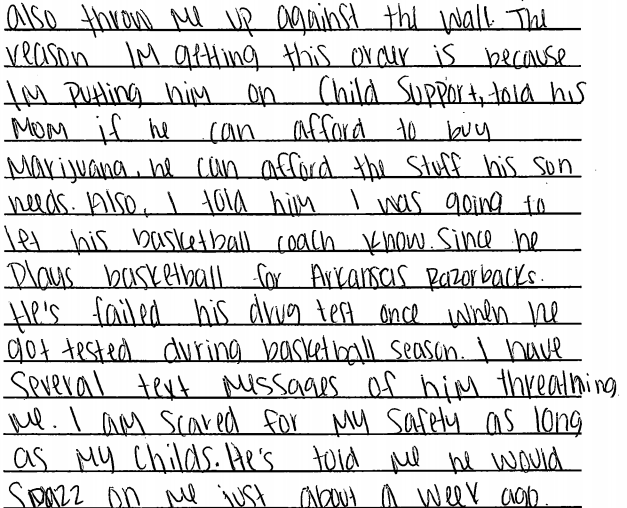 also throw me up against the wall. The
reason Im getting this order is because
Im putting him on Child Support, told his
Mom if he can afford to buy
Marijuana, he can afford the stuff his son
needs. Also, I told him I was going to
let his basketball coach know. Since he
Plays basketball for Arkansas Razorbacks.
He's failed his drug test once when he
got tested during basketball season. I have
Several text messages of him threathing
me. I am scared for my safety as long
as my childs. He's told me he would
Spazz on me just about a week ago.